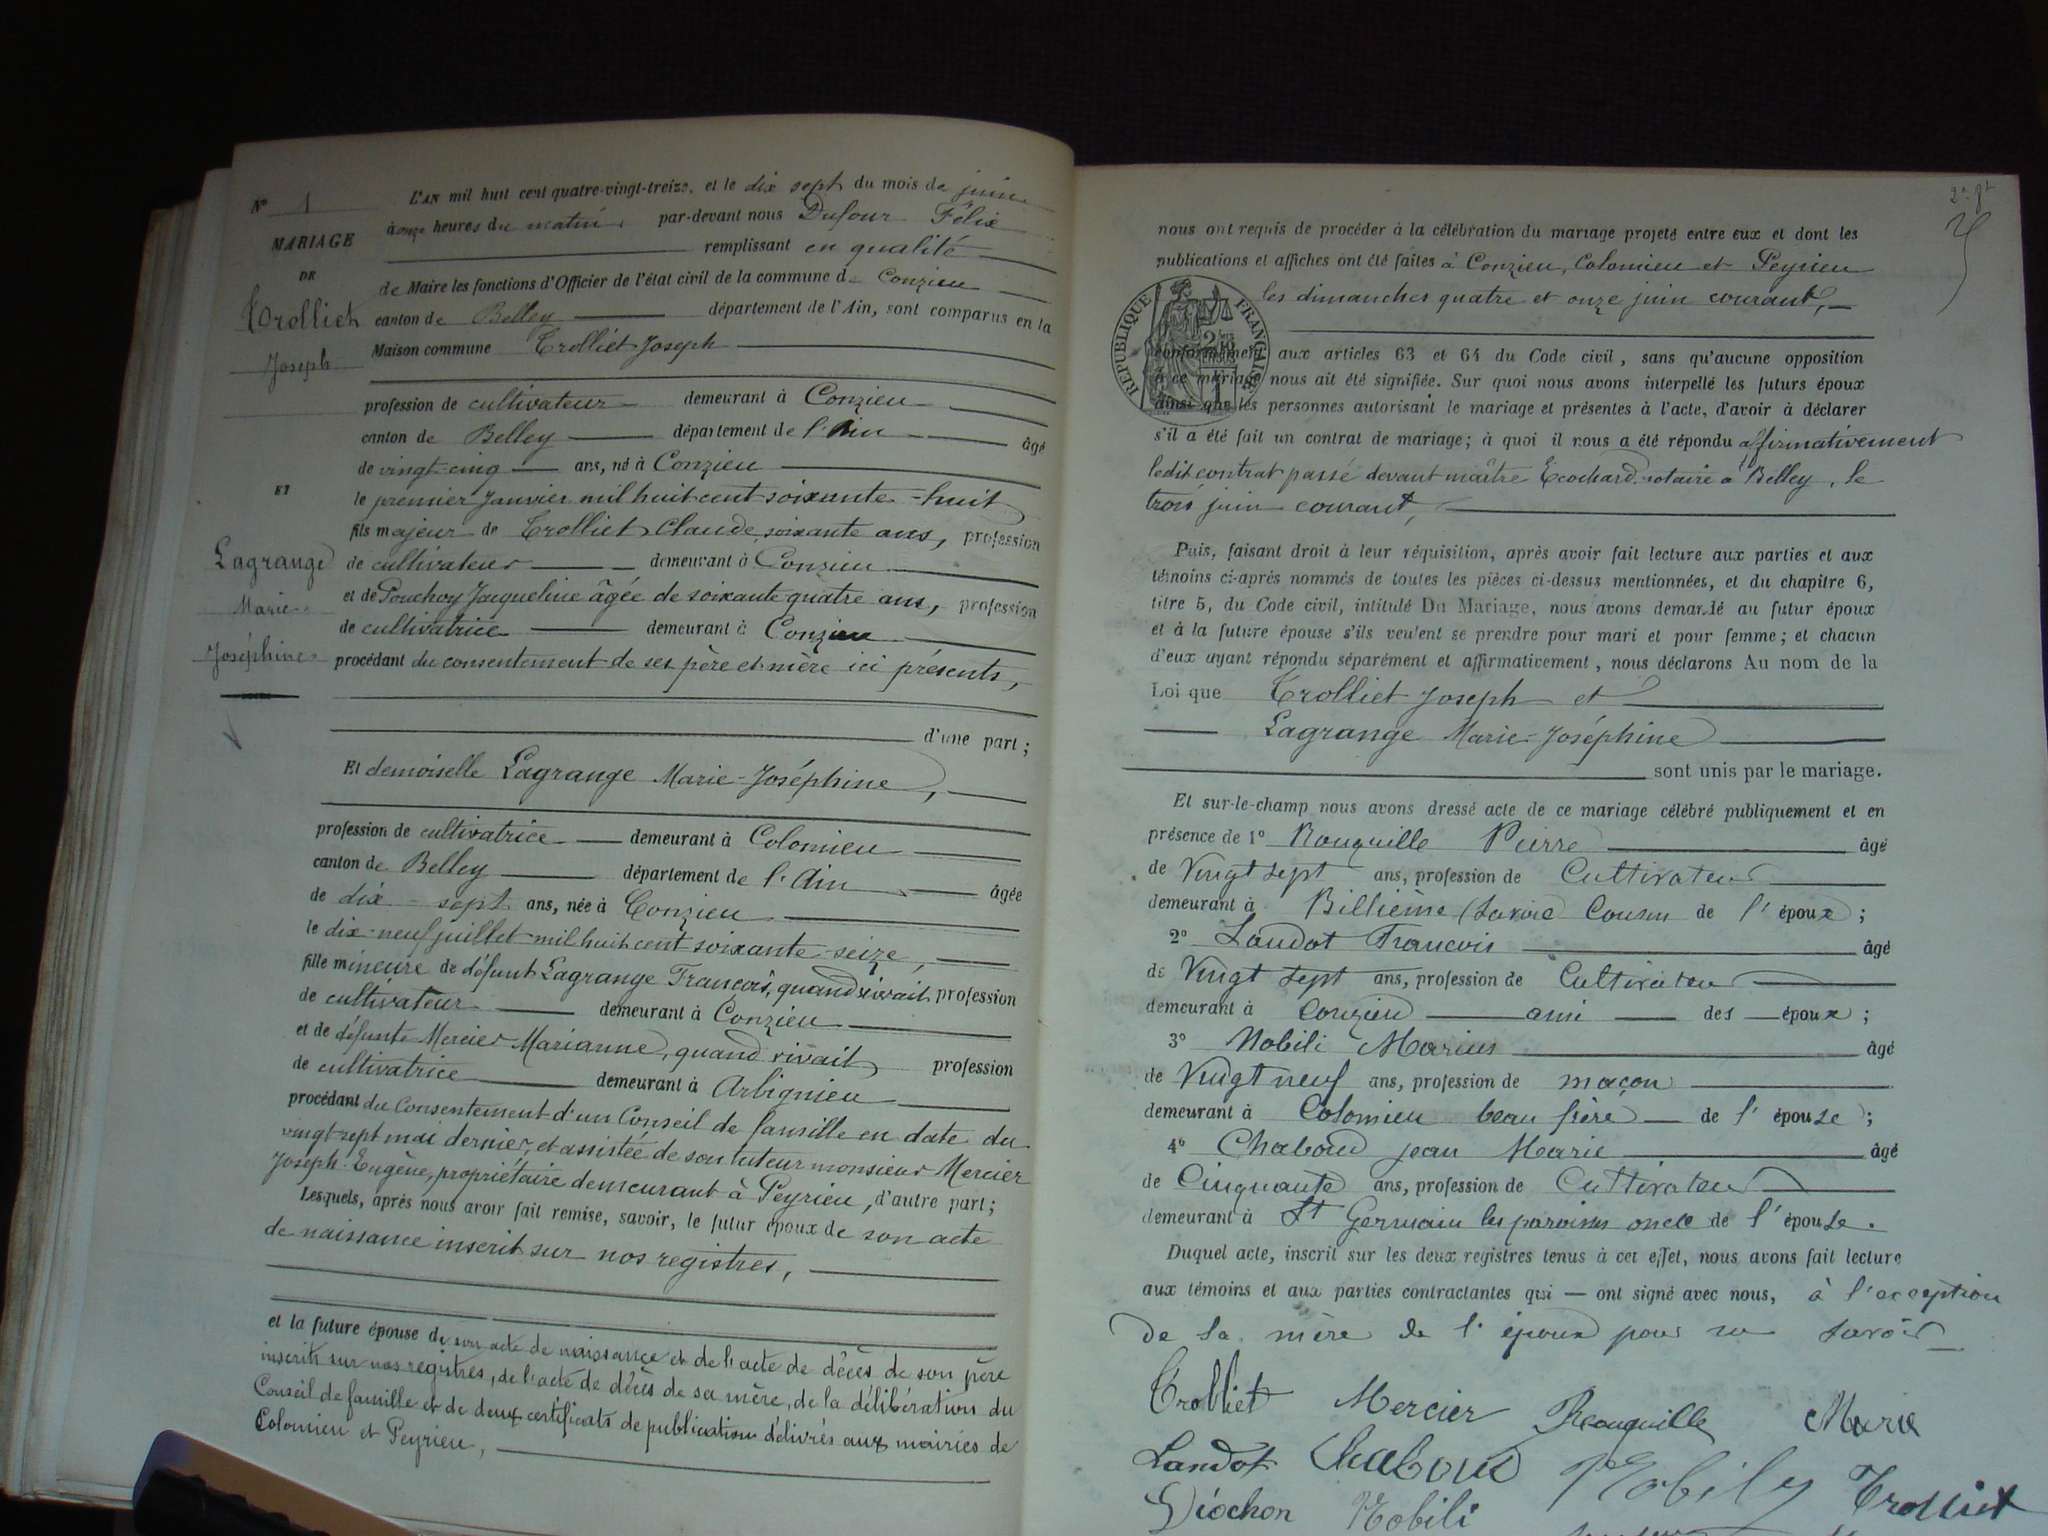 N° 1
MARIAGE
DE
Trolliet
Joseph
ET
Lagrange
Marie
Joséphine
L'AN mil huit cent quatre-vingt-treize, et le dix sept du mois de juin
à onze heures du matin, par-devant nous Dufour Félix
remplissant en qualité
de Maire les fonctions d'Officier de l'état civil de la commune de Conzieu
canton de Belley département de l'Ain, sont comparus en la
Maison commune Trolliet Joseph
profession de cultivateur demeurant à Conzieu
canton de Belley département de l'Ain âgé
de vingt-cinq ans, né à Conzieu
le premier Janvier mil huit cent soixante-huit
fils majeur de Trolliet Claude, soixante ans, profession
de cultivateur demeurant à Conzieu
et de Pouchoy Jacqueline âgée de soixante quatre ans, profession
de cultivatrice demeurant à Conzieu
procédant du consentement de ses père et mère ici présents,
d'une part;
Et demoiselle Lagrange Marie-Joséphine,
profession de cultivatrice demeurant à Colomieu
canton de Belley département de l'Ain âgée
de dix-sept ans, née à Conzieu
le dix-neuf juillet mil huit cent soixante-seize,
fille mineure de défunt Lagrange François, quand vivait profession
de cultivateur demeurant à Conzieu
et de défunte Mercier Marianne, quand vivait profession
de cultivatrice demeurant à Arbignieu
procédant du Consentement d'un Conseil de famille en date du
vingt sept mai dernier, et assistée de son tuteur monsieur Mercier
Joseph-Eugène, propriétaire demeurant à Peyrieu, d'autre part;
Lesquels, après nous avoir fait remise, savoir, le futur époux de son acte
de naissance inscrit sur nos registres,
et la future épouse de son acte de naissance et de l'acte de décès de son père
inscrits sur nos registres, de l'acte de décès de sa mère, de la délibération du
Conseil de famille et de deux certificats de publication délivrés aux mairies de
Colomieu et Peyrieu,
nous ont requis de procéder à la célébration du mariage projeté entre eux et dont les
publications et affiches ont été faites à Conzieu, Colomieu et Peyrieu
les dimanches quatre et onze juin courant,
RÉPUBLIQUE FRANÇAISE
conformément aux articles 63 et 64 du Code civil, sans qu'aucune opposition
à ce mariage nous ait été signifiée. Sur quoi nous avons interpellé les futurs époux
ainsi que les personnes autorisant le mariage et présentes à l'acte, d'avoir à déclarer
s'il a été fait un contrat de mariage; à quoi il nous a été répondu affirmativement
ledit contrat passé devant maître Ecochard notaire à Belley, le
trois juin courant,
Puis, faisant droit à leur réquisition, après avoir fait lecture aux parties et aux
témoins ci-après nommés de toutes les pièces ci-dessus mentionnées, et du chapitre 6,
titre 5, du Code civil, intitulé Du Mariage, nous avons demandé au futur époux
et à la future épouse s'ils veulent se prendre pour mari et pour femme; et chacun
d'eux ayant répondu séparément et affirmativement, nous déclarons Au nom de la
Loi que Trolliet Joseph et
Lagrange Marie-Joséphine
sont unis par le mariage.
Et sur-le-champ nous avons dressé acte de ce mariage célébré publiquement et en
présence de 1° Rouquille Pierre âgé
de Vingt sept ans, profession de Cultivateur
demeurant à Billième (Savoie) Cousin de l'époux;
2° Landot Francois âgé
de Vingt sept ans, profession de Cultivateur
demeurant à Conzieu ami des époux;
3° Nobili Marius âgé
de Vingt neuf ans, profession de maçon
demeurant à Colomieu beau frère de l'épouse;
4° Chaboud jean Marie âgé
de Cinquante ans, profession de Cultivateur
demeurant à St Germain les paroisses oncle de l'épouse.
Duquel acte, inscrit sur les deux registres tenus à cet effet, nous avons fait lecture
aux témoins et aux parties contractantes qui — ont signé avec nous, à l'exception
de la mère de l'époux pour ne savoir
Trolliet Mercier Rouquille Marie
Landot Chaboud Nobily Trolliet
Diochon Nobili